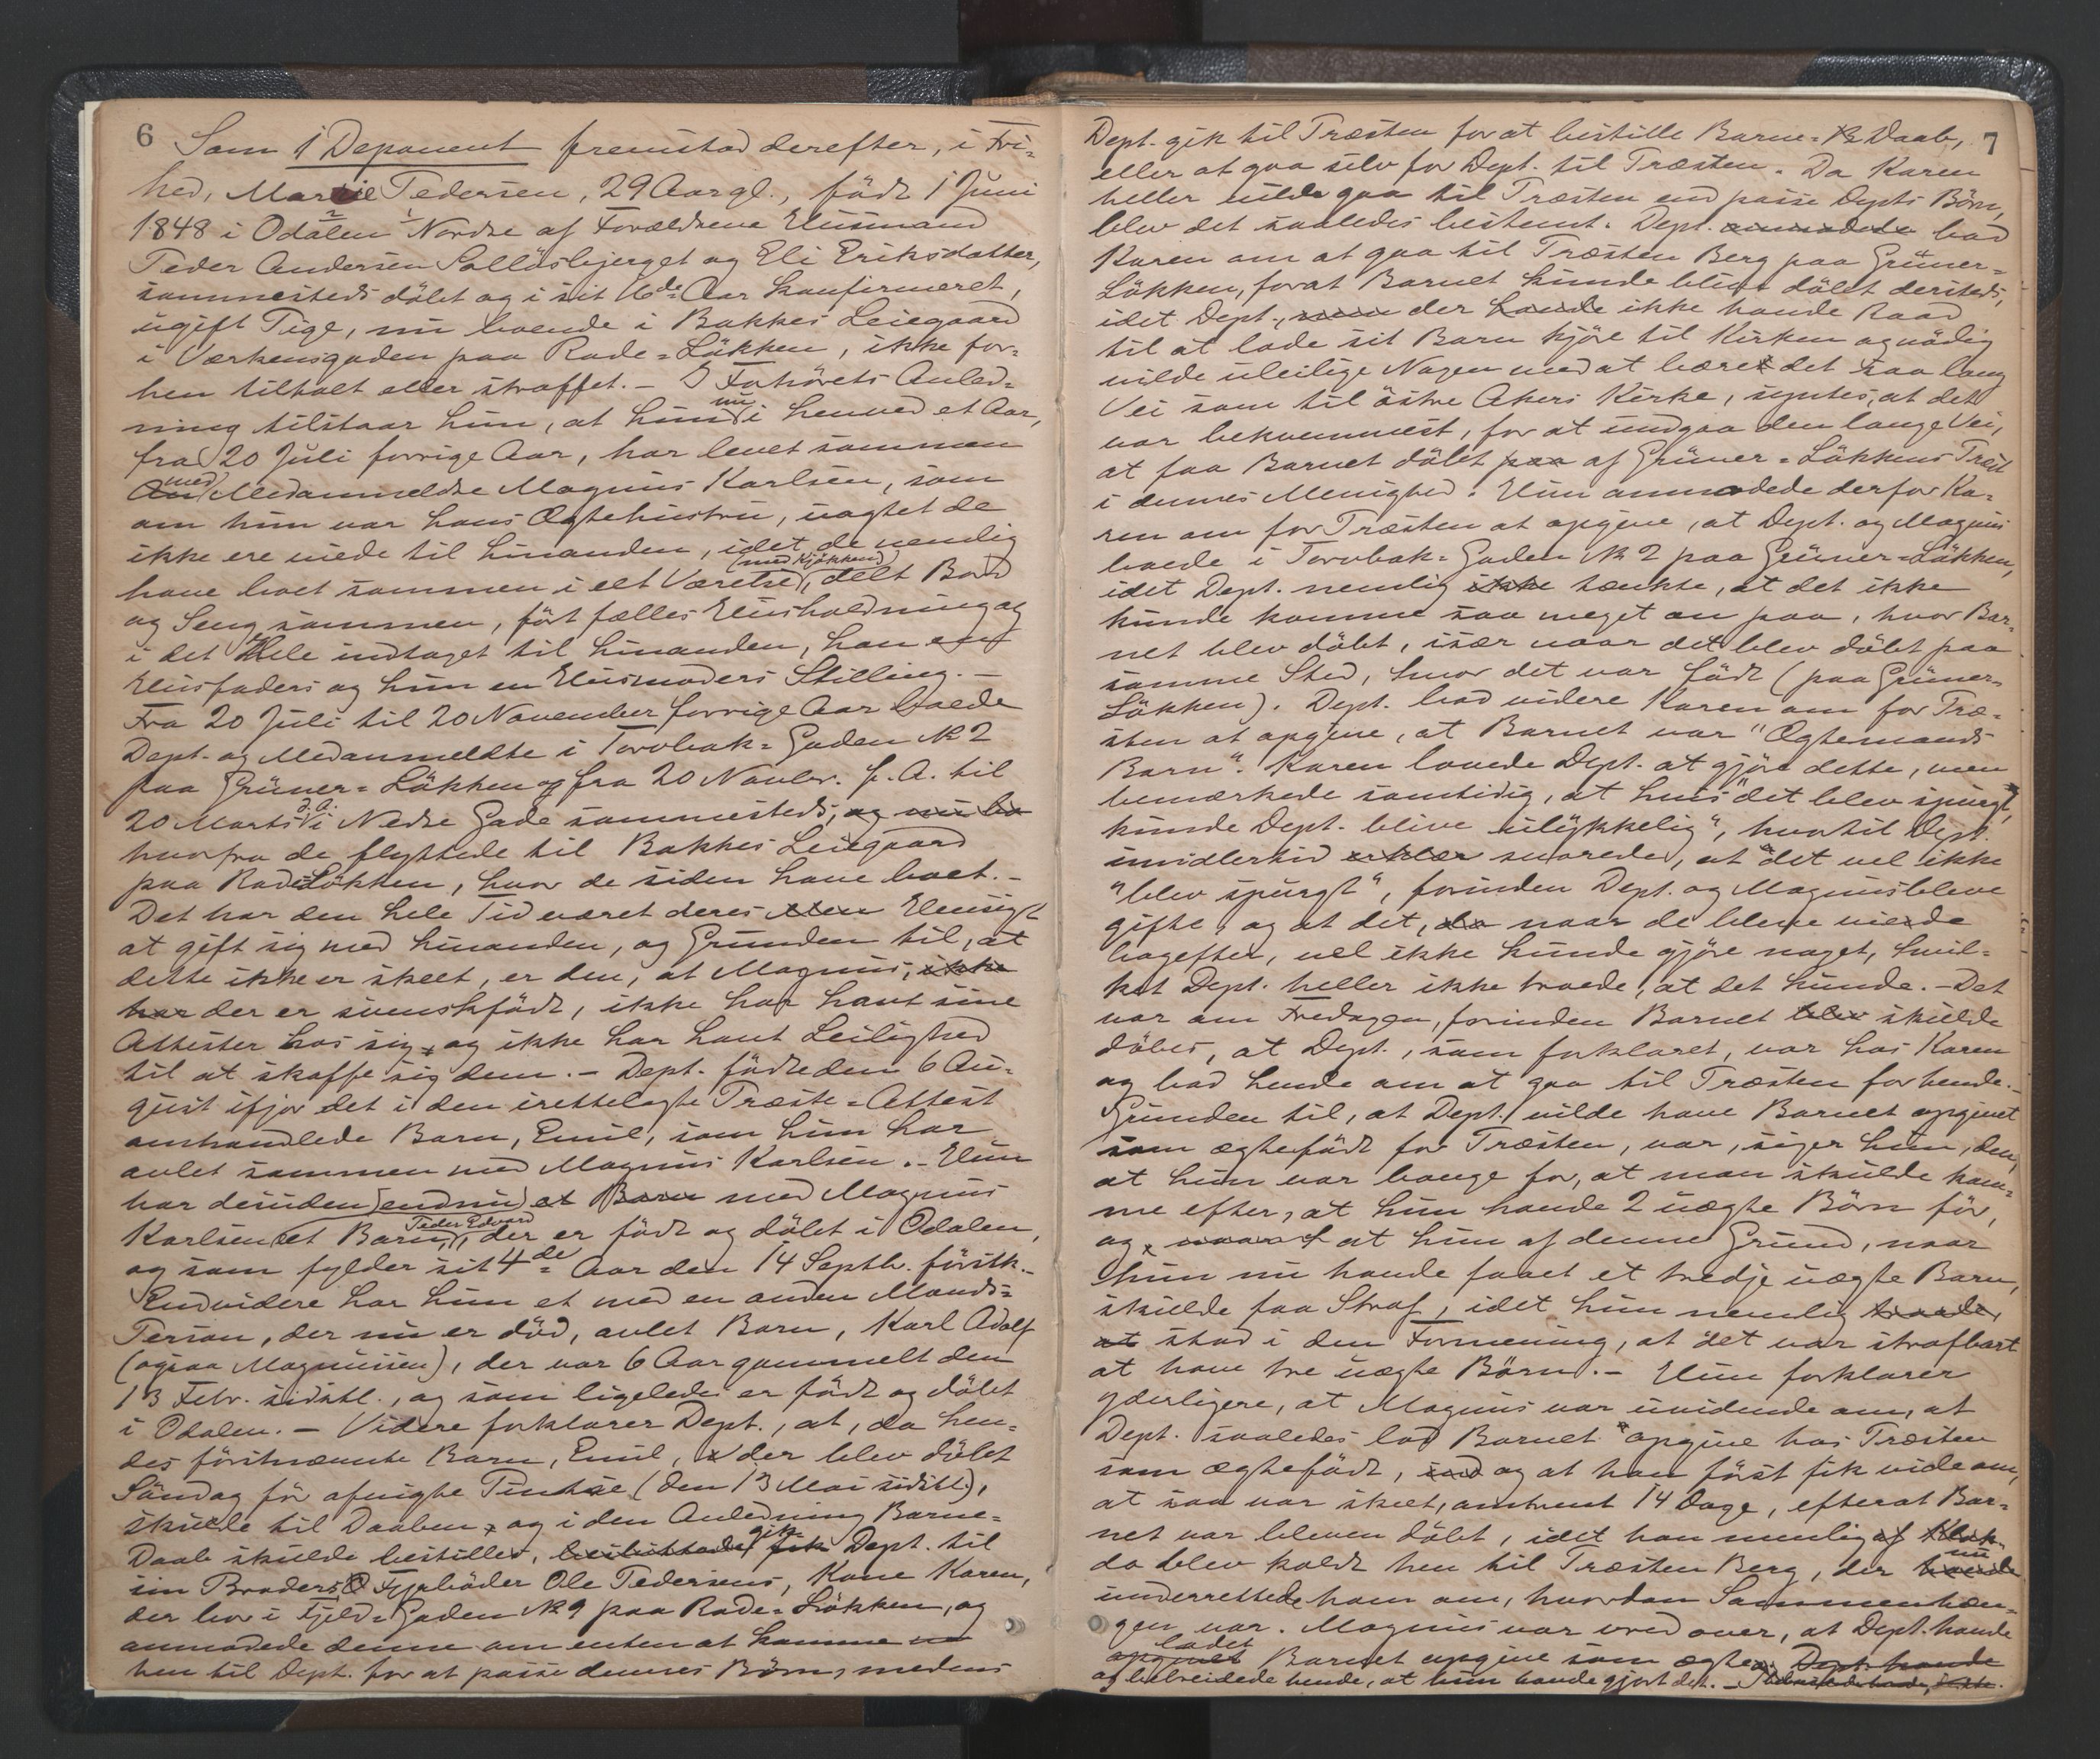 6
Som 1 Deponent fremstod derefter, i Fri-
hed, Marie Pedersen, 29 Aar gl., födt 1 Juni
1848 i Odalen Nordre af Forældrene Husmand
Peder Andersen Sollösbjerget og Eli Eriksdatter,
sammesteds döbt og i sit 16de Aar konfirmeret,
ugift Pige, nu boende i Bakkes Leiegaard
i Værkensgaden paa Rode-Løkken, ikke for-
hen tiltalt eller straffet. - I Forhørets Anled-
ning tilstaar hun, at hun nu i henved et Aar,
fra 20 Juli forrige Aar, har levet sammen
med Medanmeldte Magnus Karlsen, som
om hun var hans Ægtehustru, uagtet de
ikke ere viede til hinanden, idet de nemlig
have boet sammen i eet Værelse (med Kjøkken), delt Bord
og Seng sammen, fört fælles Husholdning og
i det Hele indtaget til hinanden, han en
Husfaders og hun en Husmoders Stilling. -
Fra 20 Juli til 20 November forrige Aar boede
Dept. og Medanmeldte i Torvbak-Gaden № 2
paa Grüner-Løkken og fra 20 Novbr. f. A. til
20 Marts d. A. i Nedre Gade sammesteds, og nu bo
hvorfra de flyttede til Bakkes Leiegaard
paa Rode-Løkken, hvor de siden have boet. -
Det har den hele Tid været deres Hensigt
at gift sig med hinanden, og Grunden til, at
dette ikke er skeet, er den, at Magnus, ikke
har der er svenskfödt, ikke har havt sine
Attester hos sig, og ikke har havt Leilighed
til at skaffe sig dem. - Dept. födte den 6 Au-
gust ifjor det i den irettelagte Præste-Attest
omhandlede Barn, Emil, som hun har
avlet sammen med Magnus Karlsen. - Hun
har desuden endnu et Barn med Magnus
Karlsen et Barn, Peder Edvard, der er födt og döbt i Odalen,
og som fylder sit 4de Aar den 14 Septb. förstk. -
Endvidere har hun et med en anden Mands-
Person, der nu er död, avlet Barn, Karl Adolf
(ogsaa Magnussen), der var 6 Aar gammelt den
13 Febr. sidstl., og som ligeledes er födt og döbt
i Odalen. - Videre forklarer Dept., at, da hen-
des förstnævnte Barn, Emil, der blev döbt
Söndag för afvigte Pintse (den 13 Mai sidstl.),
skulde til Daaben, og i den Anledning Barne-
Daab skulde bestilles, besluttede gik Dept. til
sin Broders, Fyrböder Ole Pedersens, Kone Karen,
der bor i Fjeld-Gaden № 9 paa Rode-Løkken, og
anmodede denne om enten at komme
hen til Dept. for at passe dennes Börn, medens
7
Dept. gik til Præsten for at bestille Barne-Daab,
eller at gaa selv for Dept. til Præsten. Da Karen
heller vilde gaa til Præsten end passe Depts Börn,
blev det saaledes bestemt. Dept. anmodede bad
Karen om at gaa til Præsten Berg paa Grüner-
Løkken, forat Barnet kunde blive döbt dersteds,
idet Dept., der havde ikke havde Raad
til at lade sit Barn kjöre til Kirken og nödig
vilde uleilige Nogen med at bære det saa lang
Vei som til östre Akers Kirke, syntes, at det
var bekvemmest, for at undgaa den lange Vei,
at faa Barnet döbt paa af Grüner-Løkkens Præst
i dennes Menighed. Hun anmodede derfor Ka-
ren om for Præsten at opgive, at Dept. og Magnus
boede i Torvbak-Gaden № 2 paa Grüner-Løkken,
idet Dept. nemlig ikke tænkte, at det ikke
kunde komme saa meget an paa, hvor Bar-
net blev döbt, især naar det blev döbt paa
samme Sted, hvor det var födt (paa Grüner-
Løkken). Dept. bad videre Karen om for Præ-
sten at opgive, at Barnet var "Ægtemands
Barn". Karen lovede Dept. at gjöre dette, men
bemærkede samtidig, at hvis "det blev spurgt,
kunde Dept. blive ulykkelig", hvortil Dept.
imidlertid erklær svarede, at "det vel ikke
"blev spurgt", forinden Dept. og Magnus bleve
gifte, og at det, da naar de bleve viede
bagefter, vel ikke kunde gjöre noget, hvil-
ket Dept. heller ikke troede, at det kunde. - Det
var om Fredagen, forinden Barnet blev skulde
döbes, at Dept., som forklaret, var hos Karen
og bad hende om at gaa til Præsten for hende. -
Grunden til, at Dept. vilde have Barnet opgivet
som ægtefödt for Præsten, var, siger hun, den,
at hun var bange for, at man skulde kom-
me efter, at hun havde 2 uægte Börn för,
og, at hun af denne Grund, naar
hun nu havde faaet et tredje uægte Barn,
skulde faa Straf, idet hun nemlig troede,
at stod i den Formening, at det var strafbart
at have tre uægte Börn. - Hun forklarer
yderligere, at Magnus var uvidende om, at
Dept. saaledes lod Barnet opgive hos Præsten
som ægtefödt, og at han först fik vide om,
at saa var skeet, omtrent 14 Dage, efterat Bar-
net var bleven döbt, idet han nemlig af Klok-
da blev kaldt hen til Præsten Berg, der nu havde
underrettede ham om, hvordan Sammenhæn-
gen var. Magnus var vred over, at Dept. havde
opgivet ladet Barnet opgive som ægte, Dept. havde
og bebreidede hende, at hun havde gjort det. -